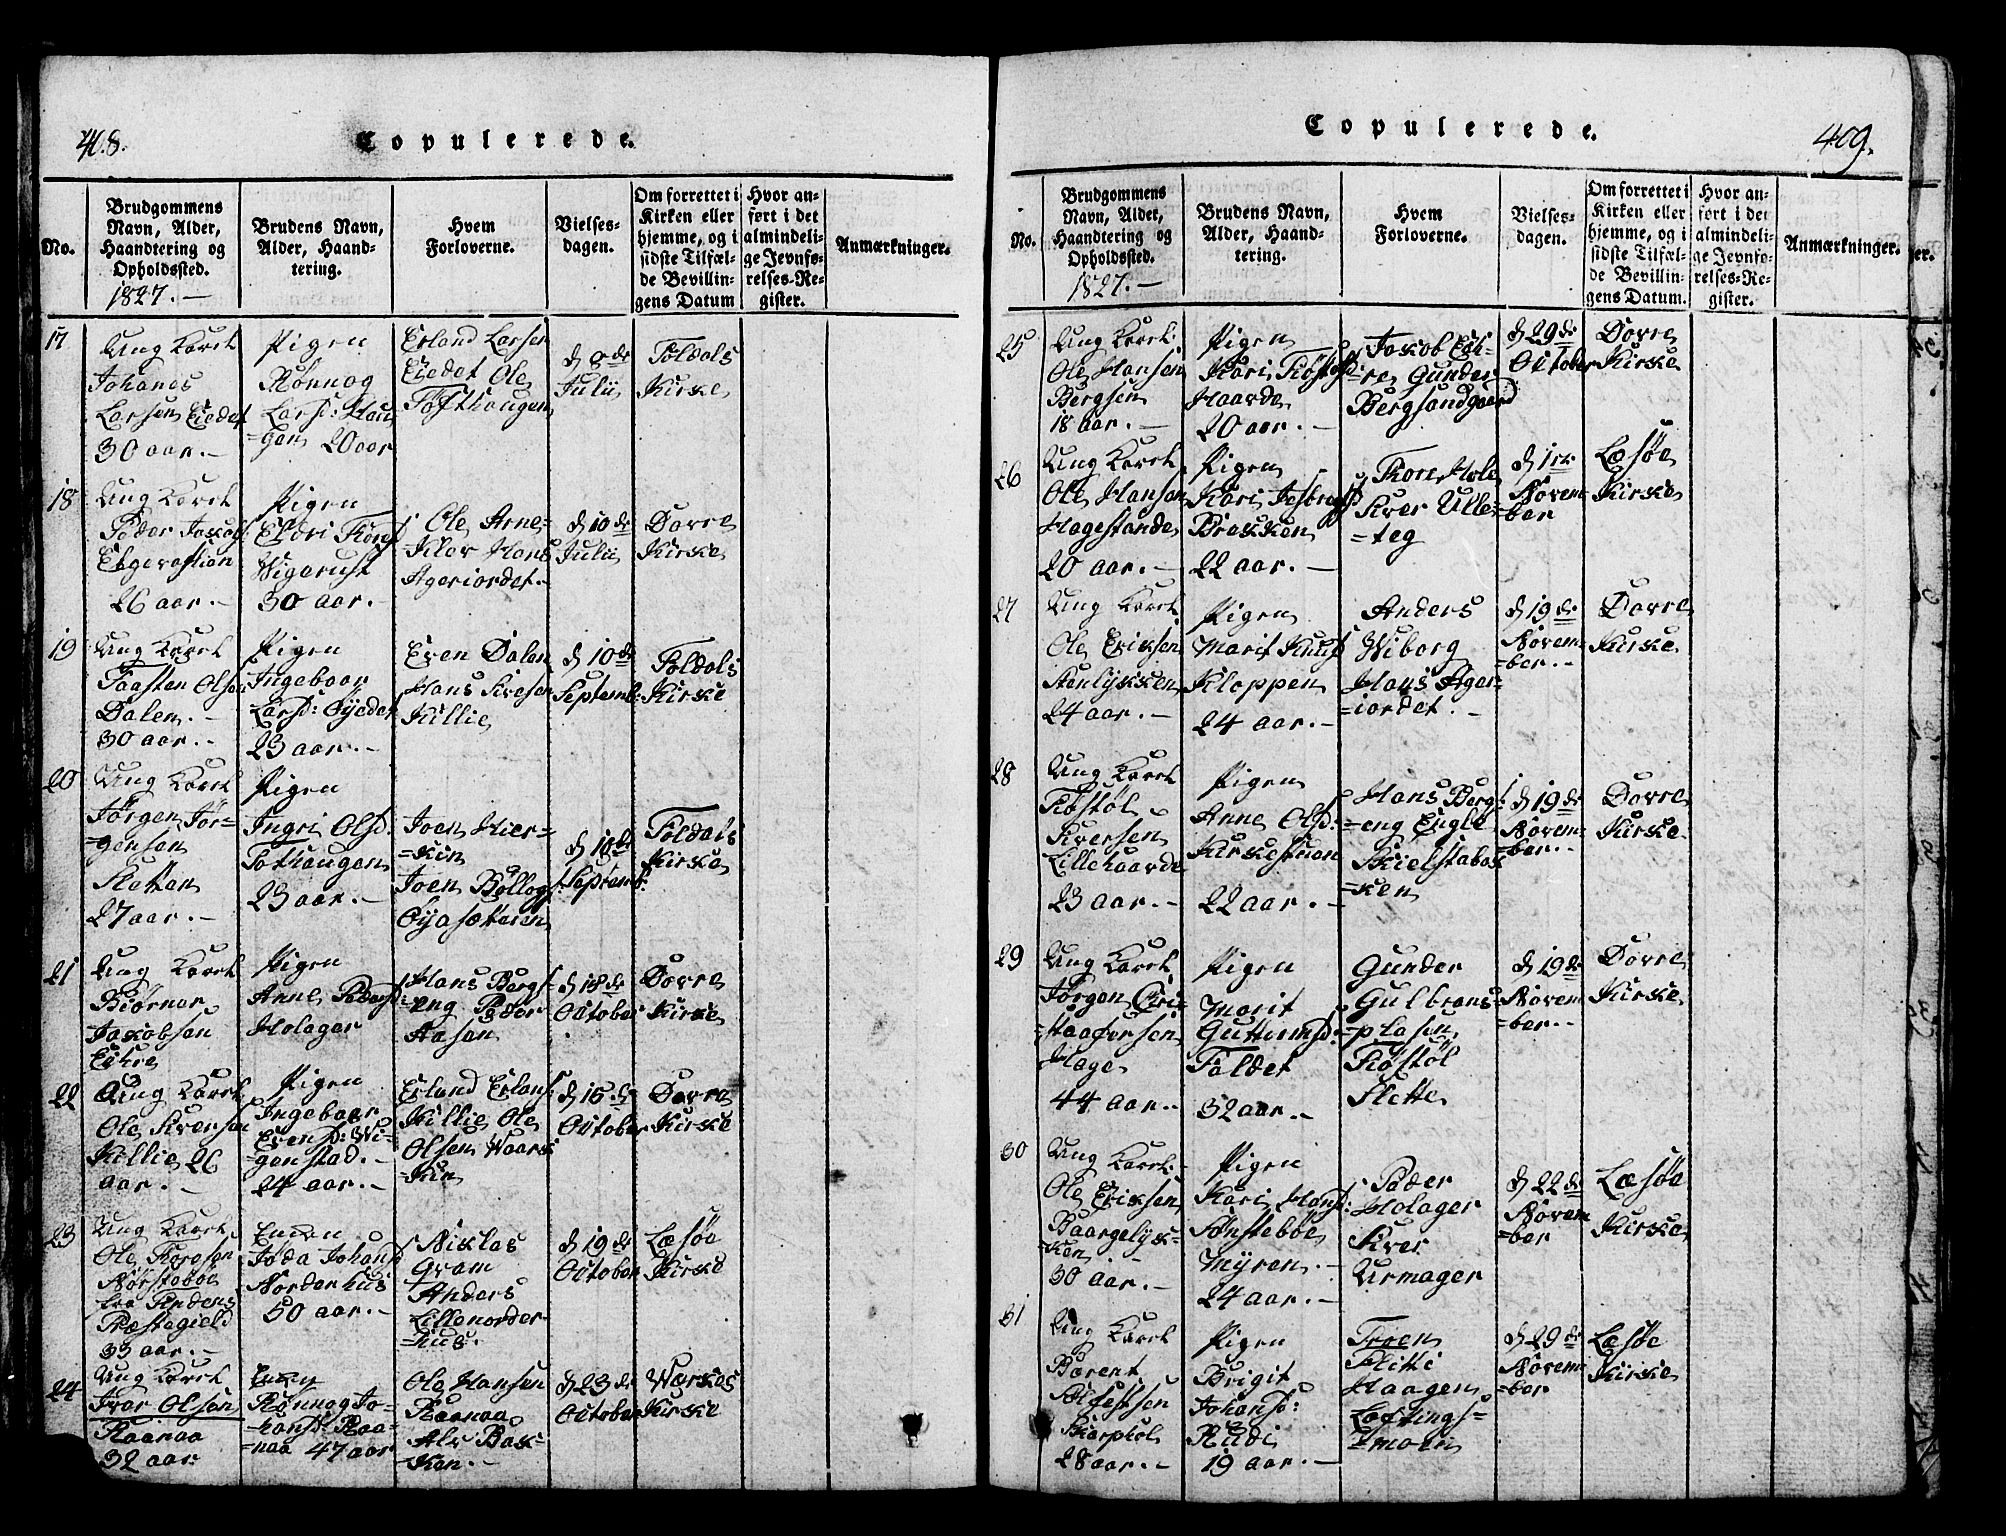 408.
Copulerede.
No.
Brudgommens
Navn, Alder,
Haandtering og
Opholdssted.
1827.
Brudens Navn,
Alder, Haand-
tering.
Hvem
Forloverne.
Vielses-
dagen.
Om forrettet i
Kirken eller
hjemme, og i
sidste Tilfæl-
de Bevillin-
gens Datum
Hvor an-
ført i det
almindeli-
ge Jevnfø-
relses-Re-
gister.
Anmærkninger.
17
Ung Karl
Johanes
Larsen Eiedet
30 aar.
Pigen
Rønnog
Larsd: Hau
=gen 20 aar
Erland Larsen
Eiedet Ole
Tofthaugen
Julii
Foldals
Kirke
18
Ung Karl
Peder Jakobs:
26 aar.
Pigen
Wigerust
30 aar.
Ole Arne=
Klev Hans
Ageriordet.
d 10de
Julii
Dovre
Kirke
19
Ung Karl
Faasten Olsen
Dalen.
30 aar.
Pigen
Ingeboer
Larsd: Øyedet
23 aar.
Even Dalen
Hans Iversen
Killie
d 10de
Septemb:
Foldals
Kirke
20
Ung Karl
Jørgen Jør-
=gensen
Sletten
27 aar.
Pigen
Ingri Olsd:
Tofhaugen
23 aar.
Joen Hier-
=kin
Joen Bøllogs:
Øyasætteren
d 10de
Septemb:
Foldals
Kirke
21
Ung Karl
Biørner
Jakobsen
Eikre
Pigen
Anne Pedersd:
Holager
Hans Bergs-
=eng Peder
Aasen
d 18de
October
Dovre
Kirke
22
Ung Karl
Ole Iversen
Killie 26
aar.
Pigen
Ingeboer
Evensd: Wi-
=genstad.
24 aar.
Erland Erlans:
Killie Ole
Olsen Waars
=kin
October
Dovre
Kirke
23
Ung Karl
Ole Toresen
Nørstebøe
fra Tindens
Præstegield
33 aar.
Enken
Joda Johansd
Nordenhus
50 aar.
Niklas
Gram
Anders
Lillenorden-
=hus.
d 19de
October
Læsøe
Kirke
24
Ung Karl
Ivar Olsen
Raanaa
32 aar.
Rønnog Jo-
=hansd: Raa-
=naa 47 aar
Ole Hansen
Raanaa
Alv Bak-
=ken.
d 23de
October
Værkes
Kirke
409.
Copulerede.
No.
Brudgommens
Navn, Alder,
Haandtering og
Opholdssted.
1827.
Brudens Navn,
Alder, Haand-
tering.
Hvem
Forloverne.
Vielses-
dagen.
Om forrettet i
Kirken eller
hjemme, og i
sidste Tilfæl-
de Bevillin-
gens Datum.
Hvor an-
ført i det
almindeli-
ge Jevnfø-
relses-Re-
gister.
Anmærkninger.
25
Ung Karl
Ole Hansen
Bergsen
18 aar.
Pigen
Kari
Haarde
20 aar.
Jakob Eik-
=re Gunder
Bergsandgaard
d 29de
October
Dovre
Kirke
26
Ung Karl
Ole Hansen
Hagestande
20 aar.
Pigen
Kari
Brekken
22 aar.
Tore Hole
Iver Ulle=
=teg
Novem=
ber
Læsøe
Kirke
27
Ung Karl
Ole Eriksen
Stenlykken
24 aar.
Pigen
Marit Knuds
Kloppen
24 aar.
Anders
Wiborg
Hans Ager-
=iordet.
d 19de
Novem-
=ber.
Dovre
Kirke
28
Ung Karl
Iversen
Lillehaarde
23 aar.
Pigen
Anne Olsd:
Kirkestuen
22 aar.
Hans Bergs:
=eng Engle
Skielstabak
=ken
d 19de
Novem=
ber.
Dovre
Kirke
29
Ung Karl
Jørgen Cri-
=staafersen
Hage
44 aar.
Pigen
Marit
Guttormsd:
Faldet
32 aar.
Gunder
Gulbrans=
=plasen
Slette
d 19de
Novem
ber.
Dovre
Kirke
30
Ung Karl
Ole Eriksen
Baargelyk-
=ken
30 aar.
Pigen
Kari Hansd:
Tønstebøe
Myren.
24 aar.
Peder
Holager
Iver
Urmager
d 22de
Novem
=ber
Læsøe
Kirke
31
Ung Karl
Berent
Skarphol
28 aar.
Pigen
Brigit
Johansd:
Rudi
19 aar.
Flitti
Haagen
Løftings=
=moen
d 29de
Novem=
=ber
Læsøe
Kirke